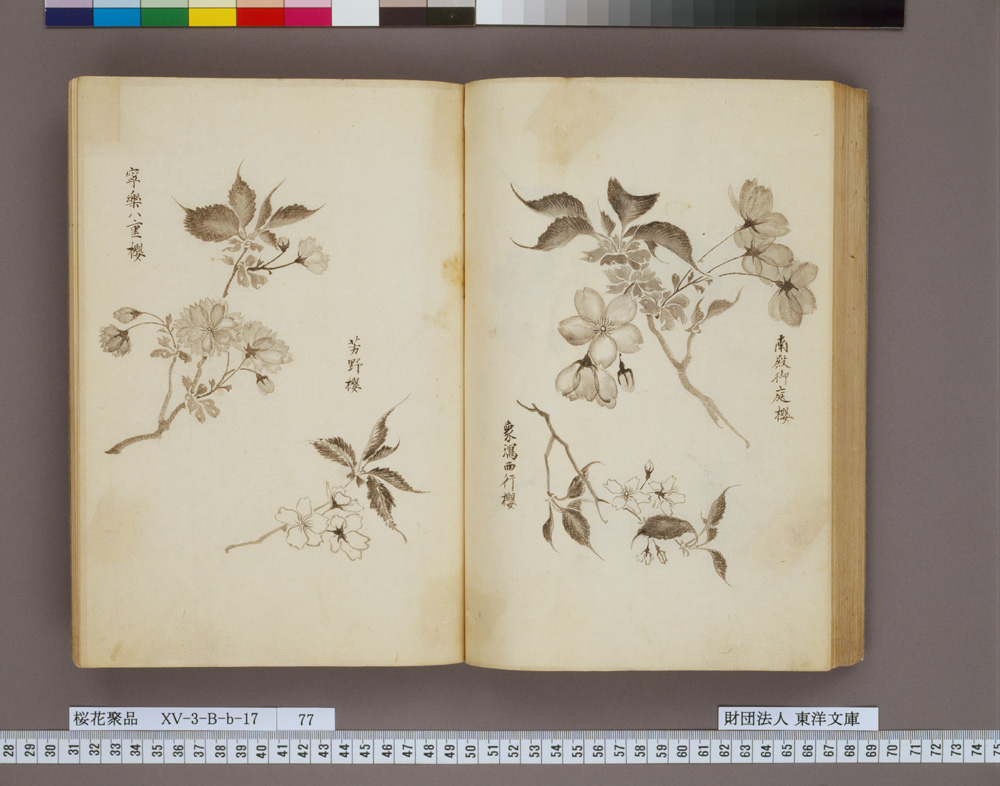 南殿御庭櫻
象潟西行櫻
寧樂八重櫻
芳野櫻
桜花聚品 XV-3-B-b-17 77
財団法人 東洋文庫
28 29 30 31 32 33 34 35 36 37 38 39 40 41 42 43 44 45 46 47 48 49 50 51 52 53 54 55 56 57 58 59 60 61 62 63 64 65 66 67 68 69 70 71 72 73 74 75